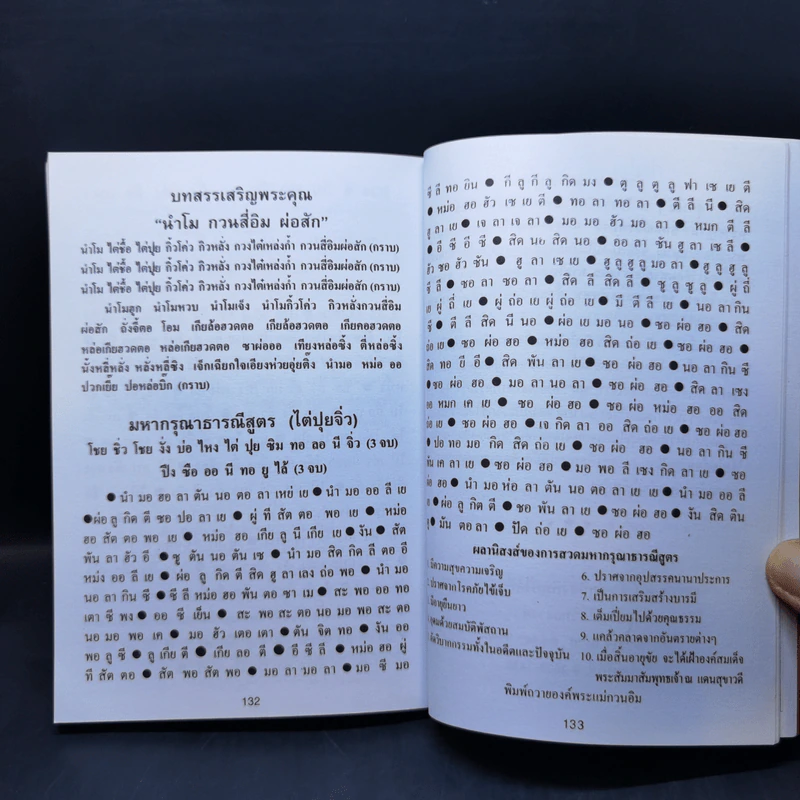 บทสรรเสริญพระคุณ
“นำโม กวนสี่อิม ผ่อสัก”
นำโม ไต่ชื้อ ไต่ปุย กิ้วโค่ว กิวหลั่ง กวงไต๋เหล่งก้ำ กวนสี่อิมผ่อสัก (กราบ)
นำโม ไต่ชื้อ ไต่ปุย กิ้วโค่ว กิวหลั่ง กวงไต๋เหล่งก้ำ กวนสี่อิมผ่อสัก (กราบ)
นำโม ไต่ชื้อ ไต่ปุย กิ้วโค่ว กิวหลั่ง กวงไต๋เหล่งก้ำ กวนสี่อิมผ่อสัก (กราบ)
นำโมฮูก นำโมหวบ นำโมเจ็ง นำโมกิ้วโค่ว กิวหลั่งกวนสี่อิม
ผ่อสัก ถั่งจี้ตอ โอม เกียล้อฮวดตอ เกียล้อฮวดตอ เกียคอฮวดตอ
หล่อเกียฮวดตอ หล่อเกียฮวดตอ ซาผ่อออ เทียงหล่อซิ้ง ตี่หล่อซิ้ง
นั้งหลี่หลั่ง หลั่งหลี่ซิง เจ็กเฉียกใจเอียงห่วยอุ่ยติ๊ง นำมอ หม่อ ออ
ปวกเยี้ย ปอหล่อบิ๊ก (กราบ)
มหากรุณาธารณีสูตร (ไต่ปุยจิ่ว)
โชย ชิ่ว โชย งั่ง บ่อ ไหง ไต่ ปุย ซิม ทอ ลอ นี จิ่ว (3 จบ)
ปึง ซือ ออ นี ทอ ยู ไล้ (3 จบ)
● นำ มอ ฮอ ลา ตัน นอ ตอ ลา เหย่ เย ● นำ มอ ออ ลี เย
● ผ่อ ลู กิต ตี ซอ ปอ ลา เย ● ผู่ ที สัต ตอ พอ เย ● หม่อ
ฮอ สัต ตอ พอ เย ● หม่อ ฮอ เกีย ลู นี เกีย เย ● งัน ● สัต
พัน ลา ฮัว อี ● ซู ตัน นอ ตัน เซ ● นำ มอ สิต กิต ลี ตอ อี
หม่ง ออ ลี เย ● ผ่อ ลู กิต ตี สิต ฮู ลา เลง ถ่อ พอ ● นำ มอ
นอ ลา กิน ซี ● ซี ลี หม่อ ฮอ พัน ตอ ซา เม ● สะ พอ ออ ทอ
เตา ซี พง ● ออ ซี เย็น ● สะ พอ สะ ตอ นอ มอ พอ สะ ตอ
นอ มอ พอ เค ● มอ ฮัว เตอ เตา ● ตัน จิต ทอ ● งัน ออ
พอ ลู ซี ● ลู เกีย ตี ● เกีย ลอ ตี ● อี ซี ลี ● หม่อ ฮอ ผู่
ที สัต ตอ ● สัต พอ สัต พอ ● มอ ลา มอ ลา ● มอ ซี มอ
132
ซี ลี ทอ ยิน ● กี ลู กี ลู กิต มง ● ตู ลู ตู ลู ฟา เซ เย ตี
● หม่อ ฮอ ฮัว เซ เย ตี ● ทอ ลา ทอ ลา ● ตี ลี นี ● สิต
ฮู ลา เย ● เจ ลา เจ ลา ● มอ มอ ฮัว มอ ลา ● หมก ตี ลี
● อี ซี อี ซี ● สิต นอ สิต นอ ● ออ ลา ซัน ฮู ลา เซ ลี ●
ฮัว ซอ ฮัว ซัน ● ฮู ลา เซ เย ● ฮู ลู ฮู ลู มอ ลา ● ฮู ลู ฮู ลู
ซี ลี ● ซอ ลา ซอ ลา ● สิต ลี สิต ลี ● ซู ลู ซู ลู ● ผู่ ถี่
เย ผู่ ถี่ เย ● ผู่ ถ่อ เย ผู่ ถ่อ เย ● มี ตี ลี เย ● นอ ลา กิน
ซี ● ตี ลี สิต นี นอ ● ผ่อ เย มอ นอ ● ซอ ผ่อ ฮอ ● สิต
ถ่อ เย ● ซอ ผ่อ ฮอ ● หม่อ ฮอ สิต ถ่อ เย ● ซอ ผ่อ ฮอ ●
สิต ทอ ยี อี ● สิต พัน ลา เย ● ซอ ผ่อ ฮอ ● นอ ลา กิน ซี
● ซอ ผ่อ ฮอ ● มอ ลา นอ ลา ● ซอ ผ่อ ฮอ ● สิต ลา เซง
ออ หมก เค เย ● ซอ ผ่อ ฮอ ● ซอ ผ่อ หม่อ ฮอ ออ สิต
ถ่อ เย ● ซอ ผ่อ ฮอ ● เจ กิต ลา ออ สิต ถ่อ เย ● ซอ ผ่อ ฮอ
● ปอ ทอ มอ กิต สิต ถ่อ เย ● ซอ ผ่อ ฮอ ● นอ ลา กิน ซี
พัน เค ลา เย ● ซอ ผ่อ ฮอ ● มอ พอ ลี เซง กิต ลา เย ● ซอ
ผ่อ ฮอ ● นำ มอ ห่อ ลา ตัน นอ ตอ ลา เย เย ● นำ มอ ออ ลี
เย ● ผ่อ ลู กิต ตี ● ซอ พัน ลา เย ● ซอ ผ่อ ฮอ ● งัน สิต ติน
ตู ● มัน ตอ ลา ● ปัด ถ่อ เย ● ซอ ผ่อ ฮอ
ผลานิสงส์ของการสวดมหากรุณาธารณีสูตร
มีความสุขความเจริญ
ปราศจากโรคภัยไข้เจ็บ
มีอายุยืนยาว
อุดมด้วยสมบัติพัสถาน
ตัดวิบากกรรมทั้งในอดีตและปัจจุบัน
6. ปราศจากอุปสรรคนานาประการ
7. เป็นการเสริมสร้างบารมี
8. เต็มเปี่ยมไปด้วยคุณธรรม
9. แคล้วคลาดจากอันตรายต่างๆ
10. เมื่อสิ้นอายุขัย จะได้เฝ้าองค์สมเด็จ
พระสัมมาสัมพุทธเจ้า ณ แดนสุขาวดี
พิมพ์ถวายองค์พระแม่กวนอิม
133